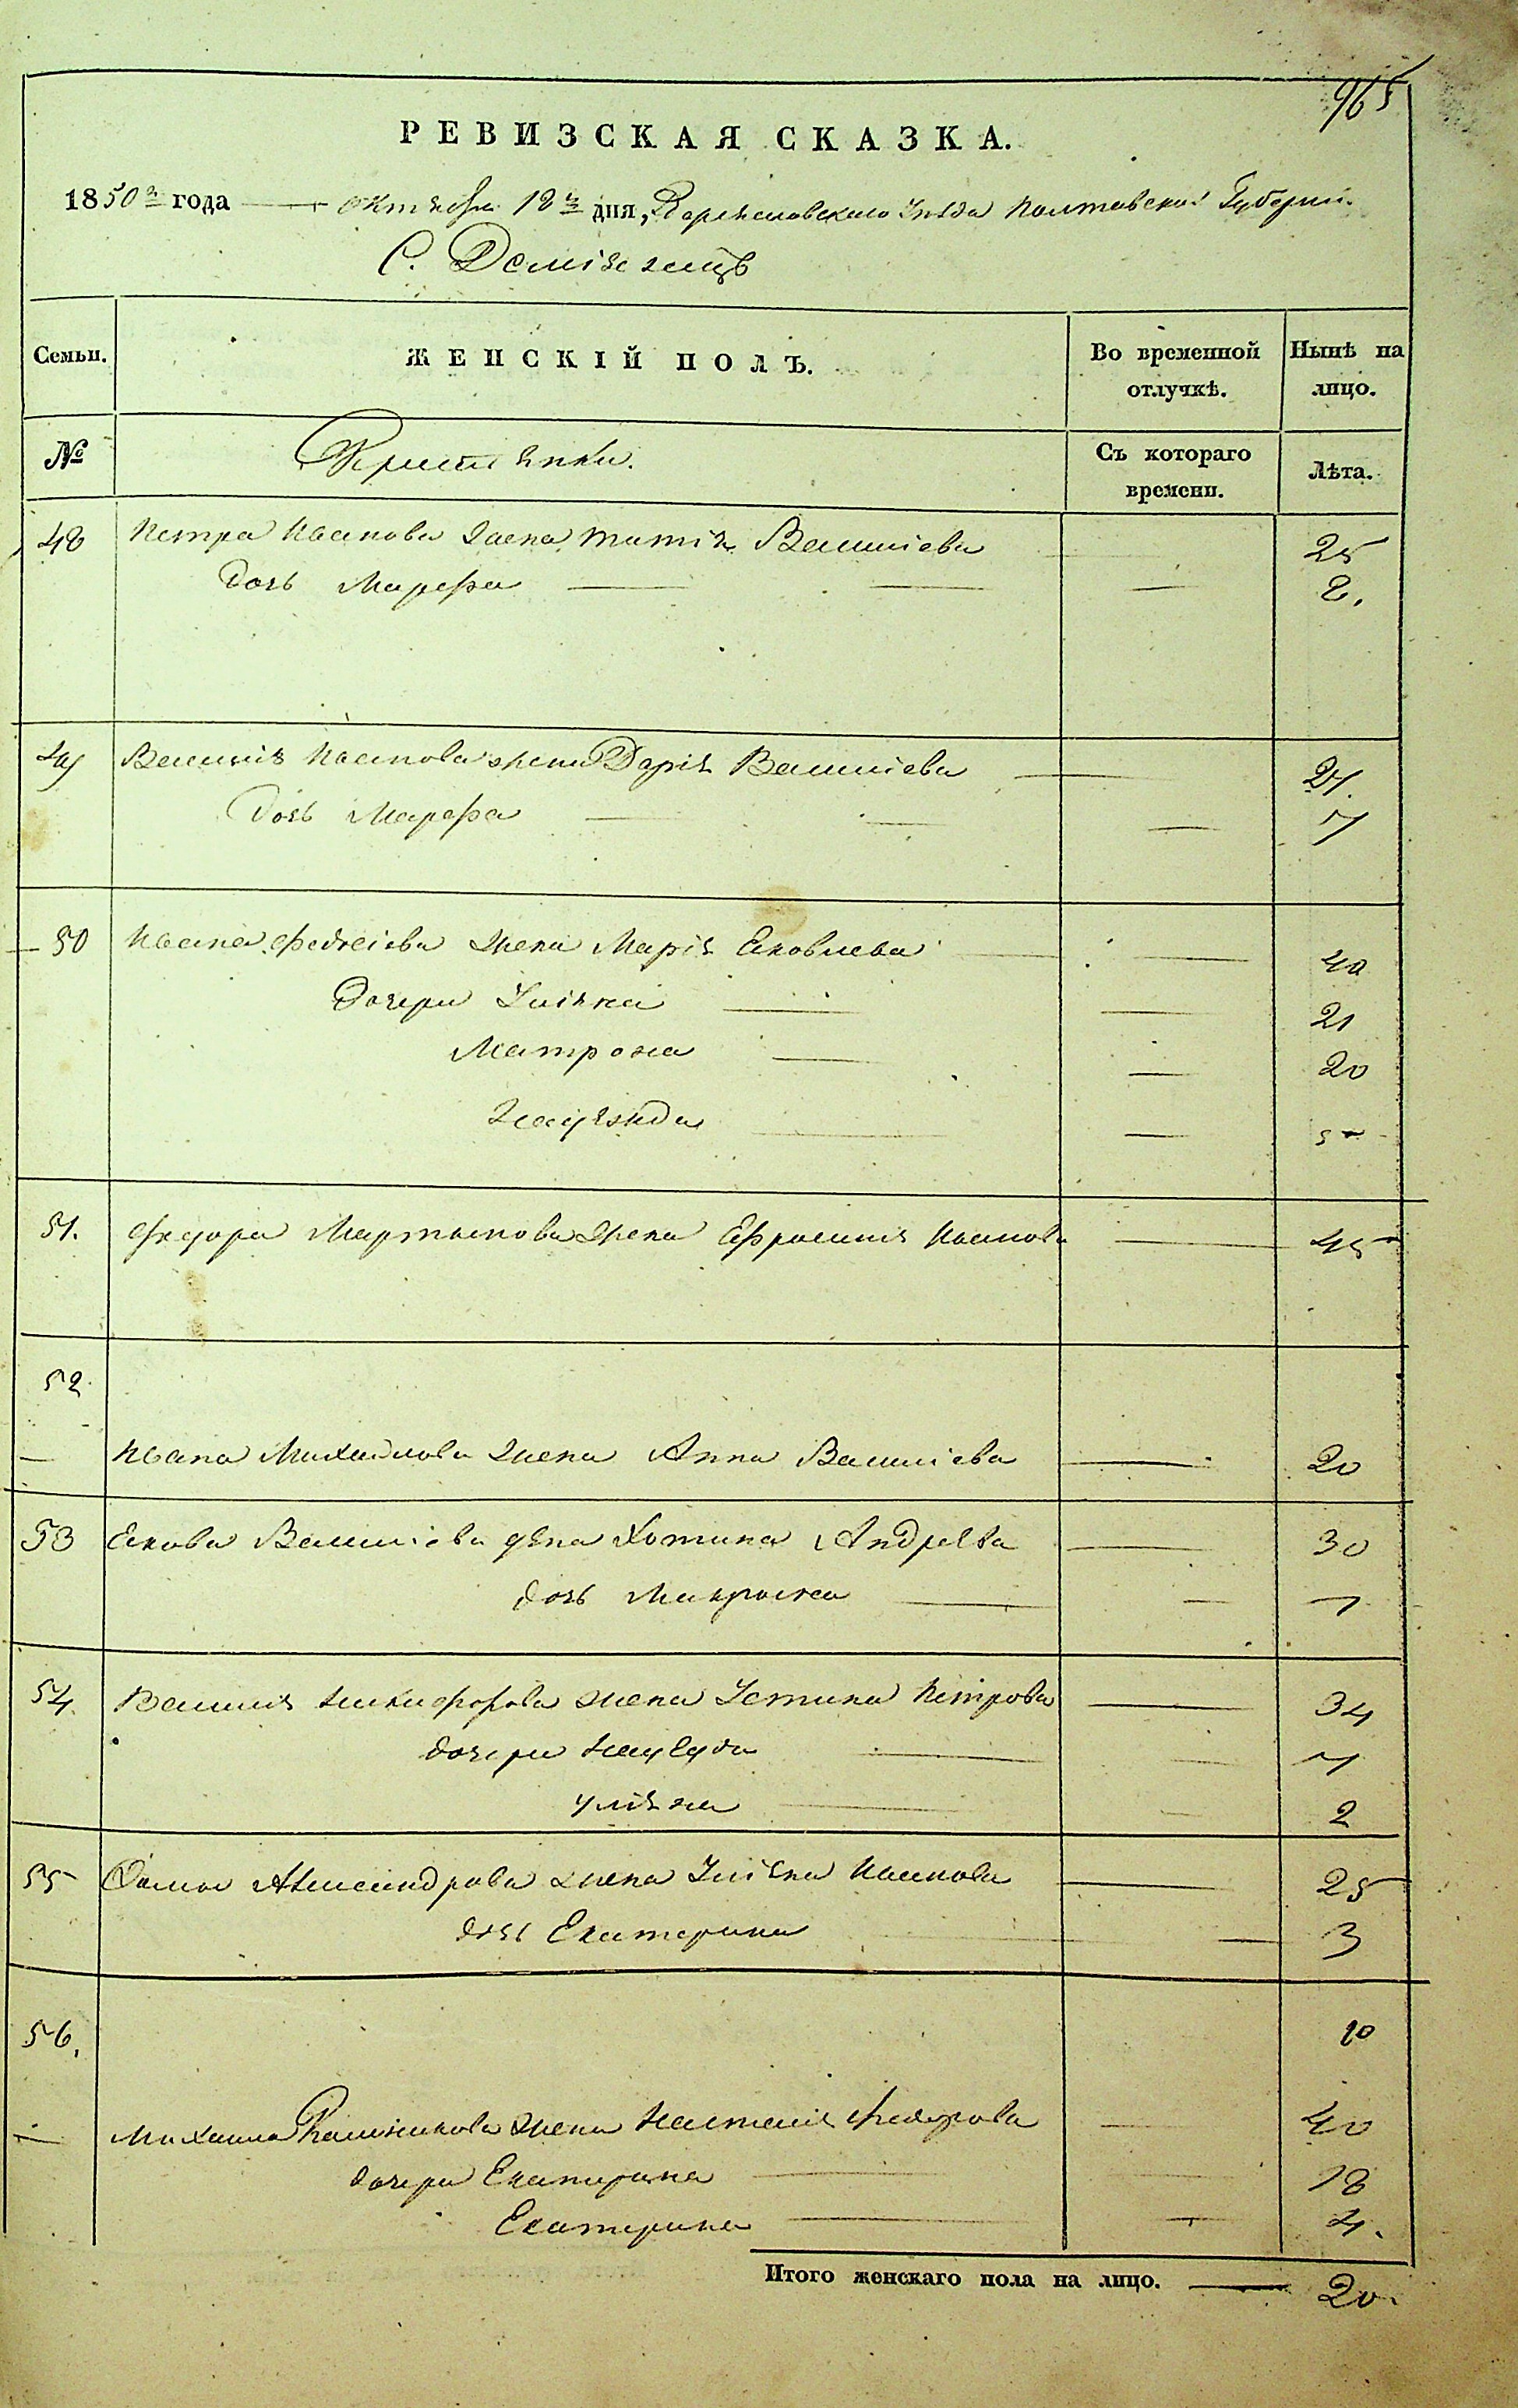 965
РЕВИЗСКАЯ СКАЗКА.
1850го года — октября 18го дня, Переяславскаго Уѣзда Полтавской Губерніи
С. Демьянецъ
Семьи. ЖЕНСКІЙ ПОЛЪ. Во временной отлучкѣ. Нынѣ на лицо.
№ Крестьянки. Съ котораго времени. Лѣта.
48 Петра Иванова жена Татія Василіева 25
дочь Марфа — — — 8.
49 Василія Иванова жена Дарія Василіева — 27.
Дочь Марфа — — — 7
50 Ивана Федосіева жена Марія Яковлева — — 40
Дочери Уліяна — — 21
Матрона — — 20
— — 5
51. Федора Мартынова жена Ефросинія Иванова — 45
52.
— Ивана Михайлова жена Анна Василіева — 20
53 Якова Василіева жена Хотина Андреева — 30
дочь — — 1
54 Василія Никифорова жена Устина Петрова — 34
дочери — — 7
уліяна — — 2
55 Фомы Александрова жена Уліяна Иванова — 25
дочь Екатерина — — 3
56. 10
— Михаила жена Наталія Федорова — 40
дочери Екатерина — — 18
Екатерина — — 4.
Итого женскаго пола на лицо. — 20.